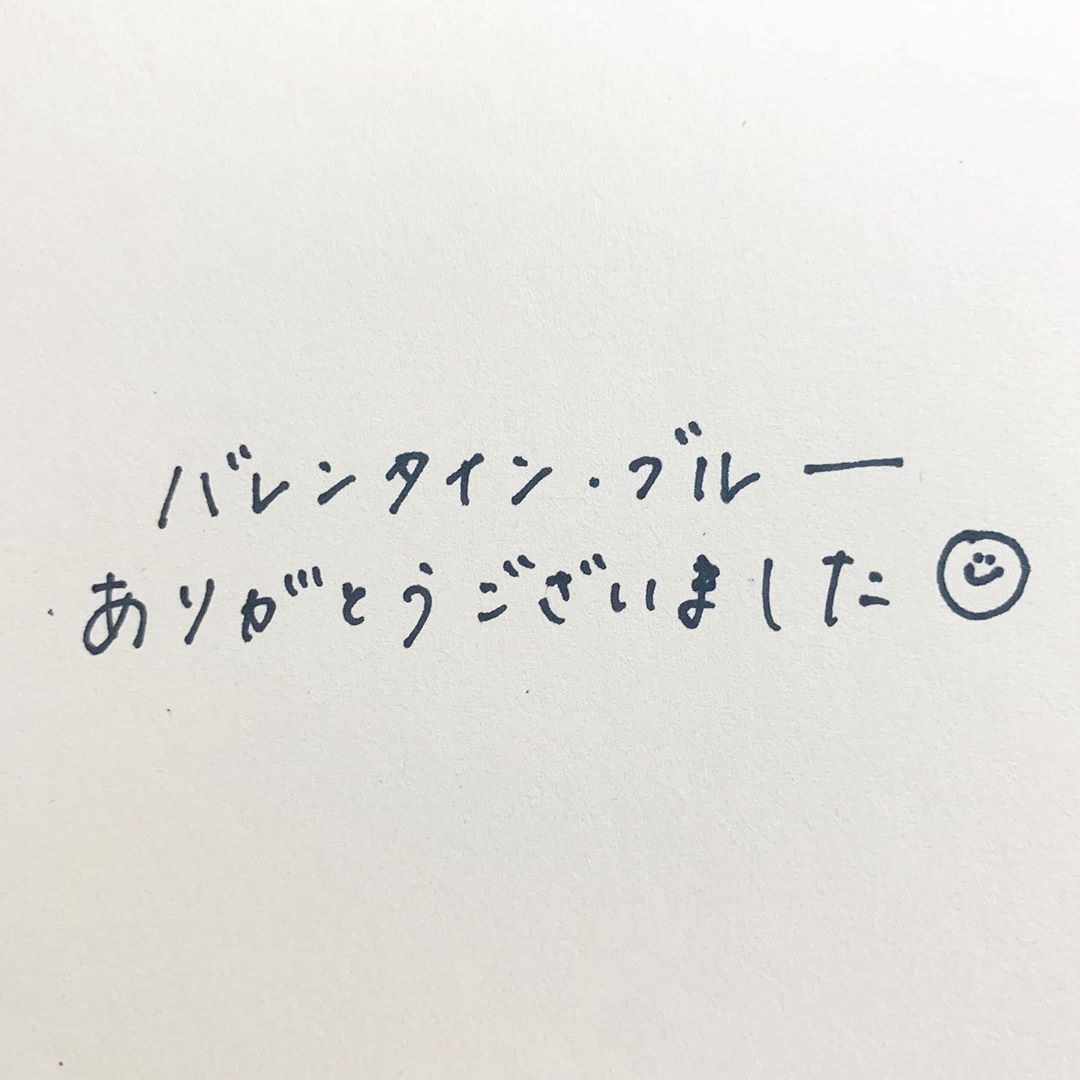 バレンタイン・ブルー
ありがとうございました